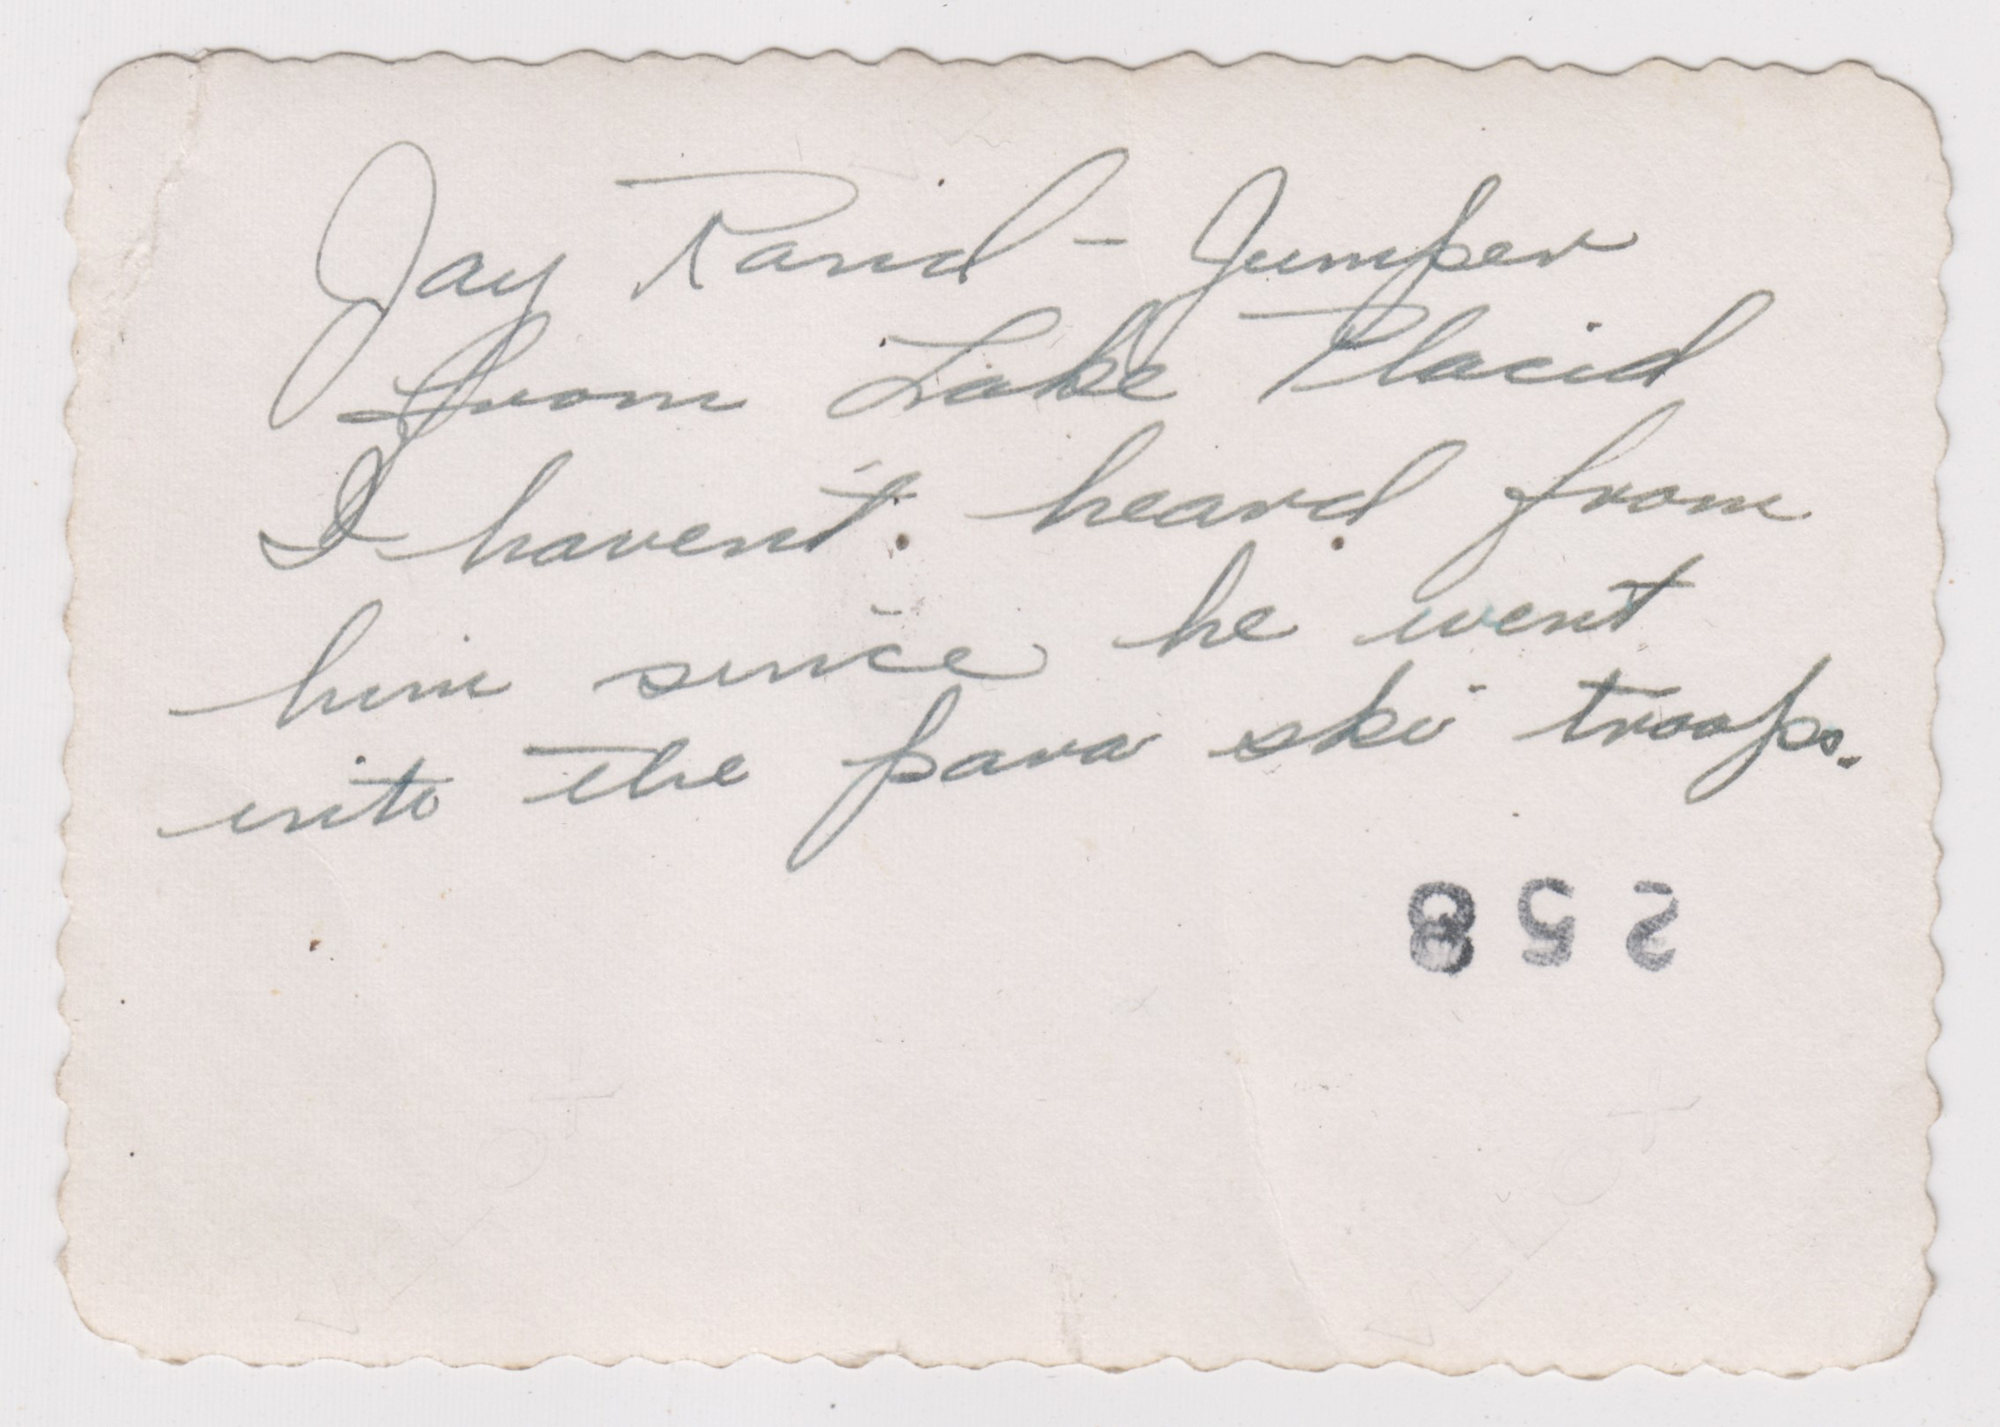 Jay Rand - Jumper
from Lake Placid
I haven't heard from
him since he went
into the para ski troops.
258